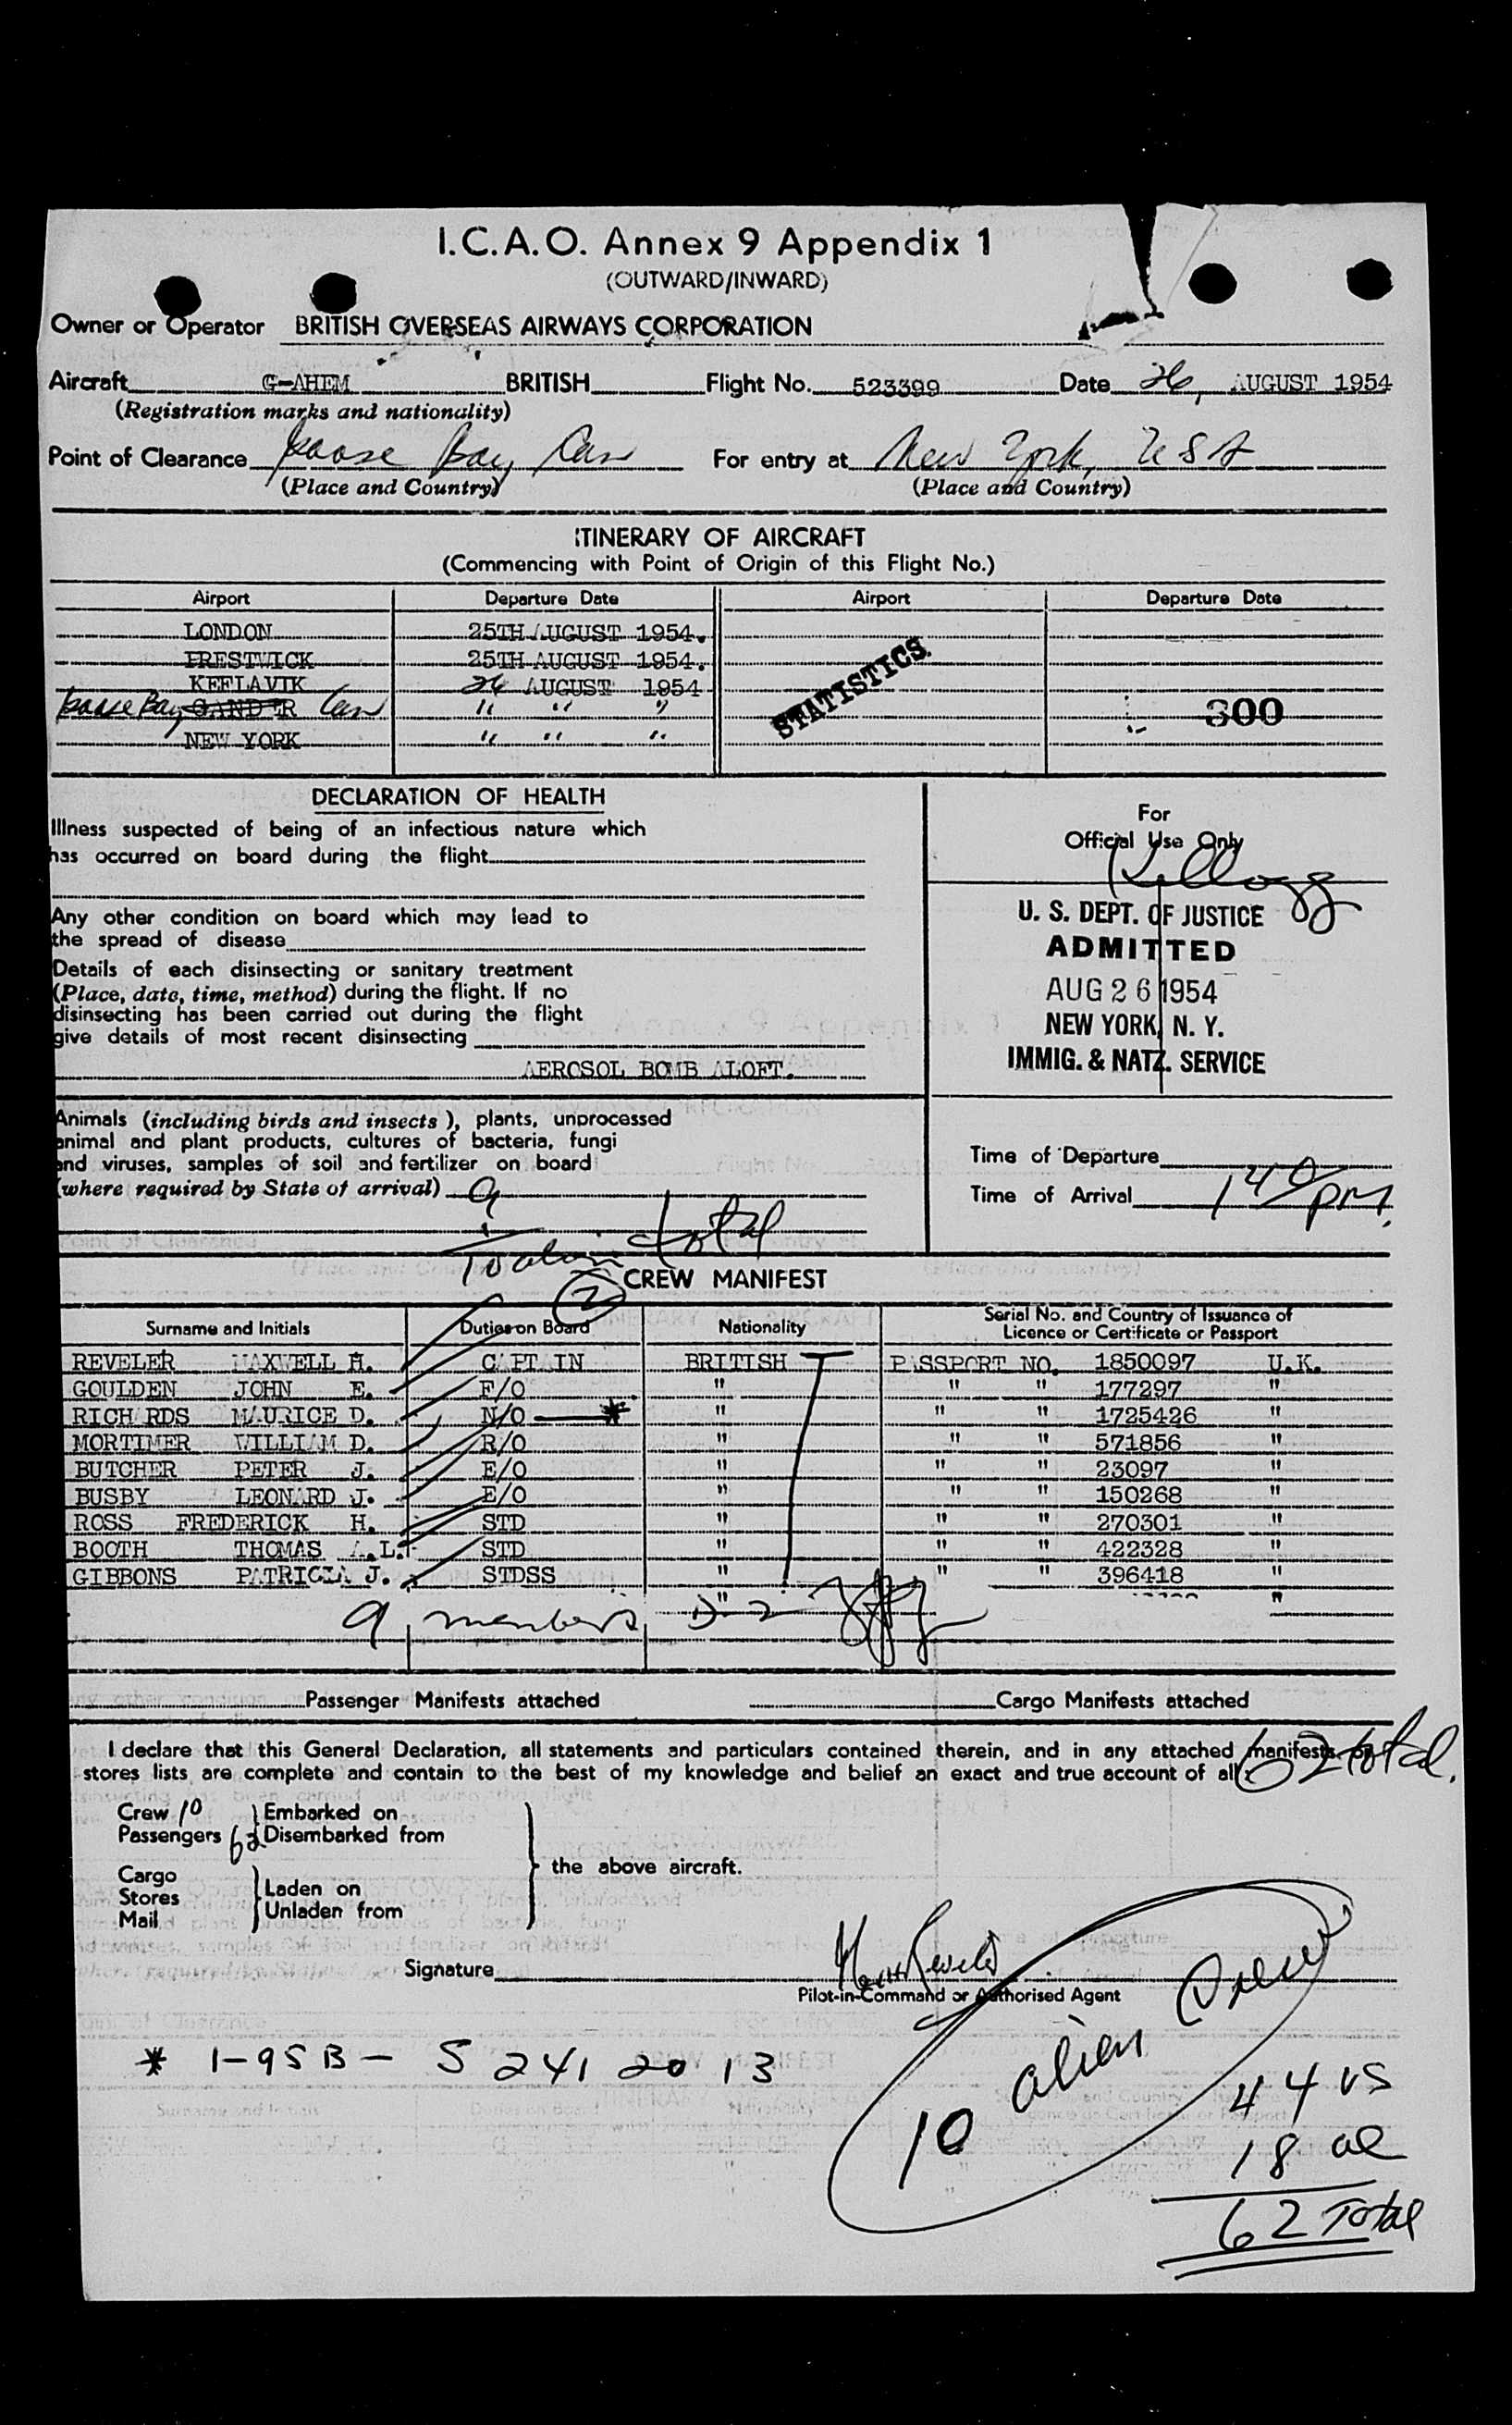 I.C.A.O. Annex 9 Appendix 1
(OUTWARD/INWARD)
Owner or Operator BRITISH OVERSEAS AIRWAYS CORPORATION
Aircraft G-AHEM BRITISH Flight No. 523399 Date 26, AUGUST 1954
(Registration marks and nationality)
Point of Clearance Goose Bay Can For entry at New York, USA
(Place and Country) (Place and Country)
ITINERARY OF AIRCRAFT
(Commencing with Point of Origin of this Flight No.)
Airport Departure Date Airport Departure Date
LONDON 25TH AUGUST 1954.
PRESTWICK 25TH AUGUST 1954.
KEFLAVIK 26 AUGUST 1954
Goose Bay GANDER Can " " "
NEW YORK " " "
STATISTICS
300
DECLARATION OF HEALTH
Illness suspected of being of an infectious nature which
has occurred on board during the flight
Any other condition on board which may lead to
the spread of disease
Details of each disinsecting or sanitary treatment
(Place, date, time, method) during the flight. If no
disinsecting has been carried out during the flight
give details of most recent disinsecting
AEROSOL BOMB ALOFT.
For
Official Use Only
Kellogg
U. S. DEPT. OF JUSTICE
ADMITTED
AUG 26 1954
NEW YORK, N. Y.
IMMIG. & NATZ. SERVICE
Animals (including birds and insects), plants, unprocessed
animal and plant products, cultures of bacteria, fungi
and viruses, samples of soil and fertilizer on board
(where required by State of arrival) 9
Time of Departure
Time of Arrival 140 PM.
10 total
2
CREW MANIFEST
Surname and Initials Duties on Board Nationality Serial No. and Country of Issuance of
Licence or Certificate or Passport
REVELER MAXWELL H. CAPTAIN BRITISH PASSPORT NO. 1850097 U.K.
GOULDEN JOHN E. F/O " " " 177297 "
RICHARDS MAURICE D. N/O * " " " 1725426 "
MORTIMER WILLIAM D. R/O " " " 571856 "
BUTCHER PETER J. E/O " " " 23097 "
BUSBY LEONARD J. E/O " " " 150268 "
ROSS FREDERICK H. STD " " " 270301 "
BOOTH THOMAS A.L. STD " " " 422328 "
GIBBONS PATRICIA J. STDSS " " " 396418 "
" "
9 members D-2
Passenger Manifests attached Cargo Manifests attached
I declare that this General Declaration, all statements and particulars contained therein, and in any attached manifests or
stores lists are complete and contain to the best of my knowledge and belief an exact and true account of all
62 total.
Crew 10 Embarked on
Passengers 62 Disembarked from
the above aircraft.
Cargo
Stores Laden on
Mail Unladen from
Signature
Pilot-in-Command or Authorised Agent
* I-95B - S 2412013
10 alien Crew
44 US
18 al
62 Total